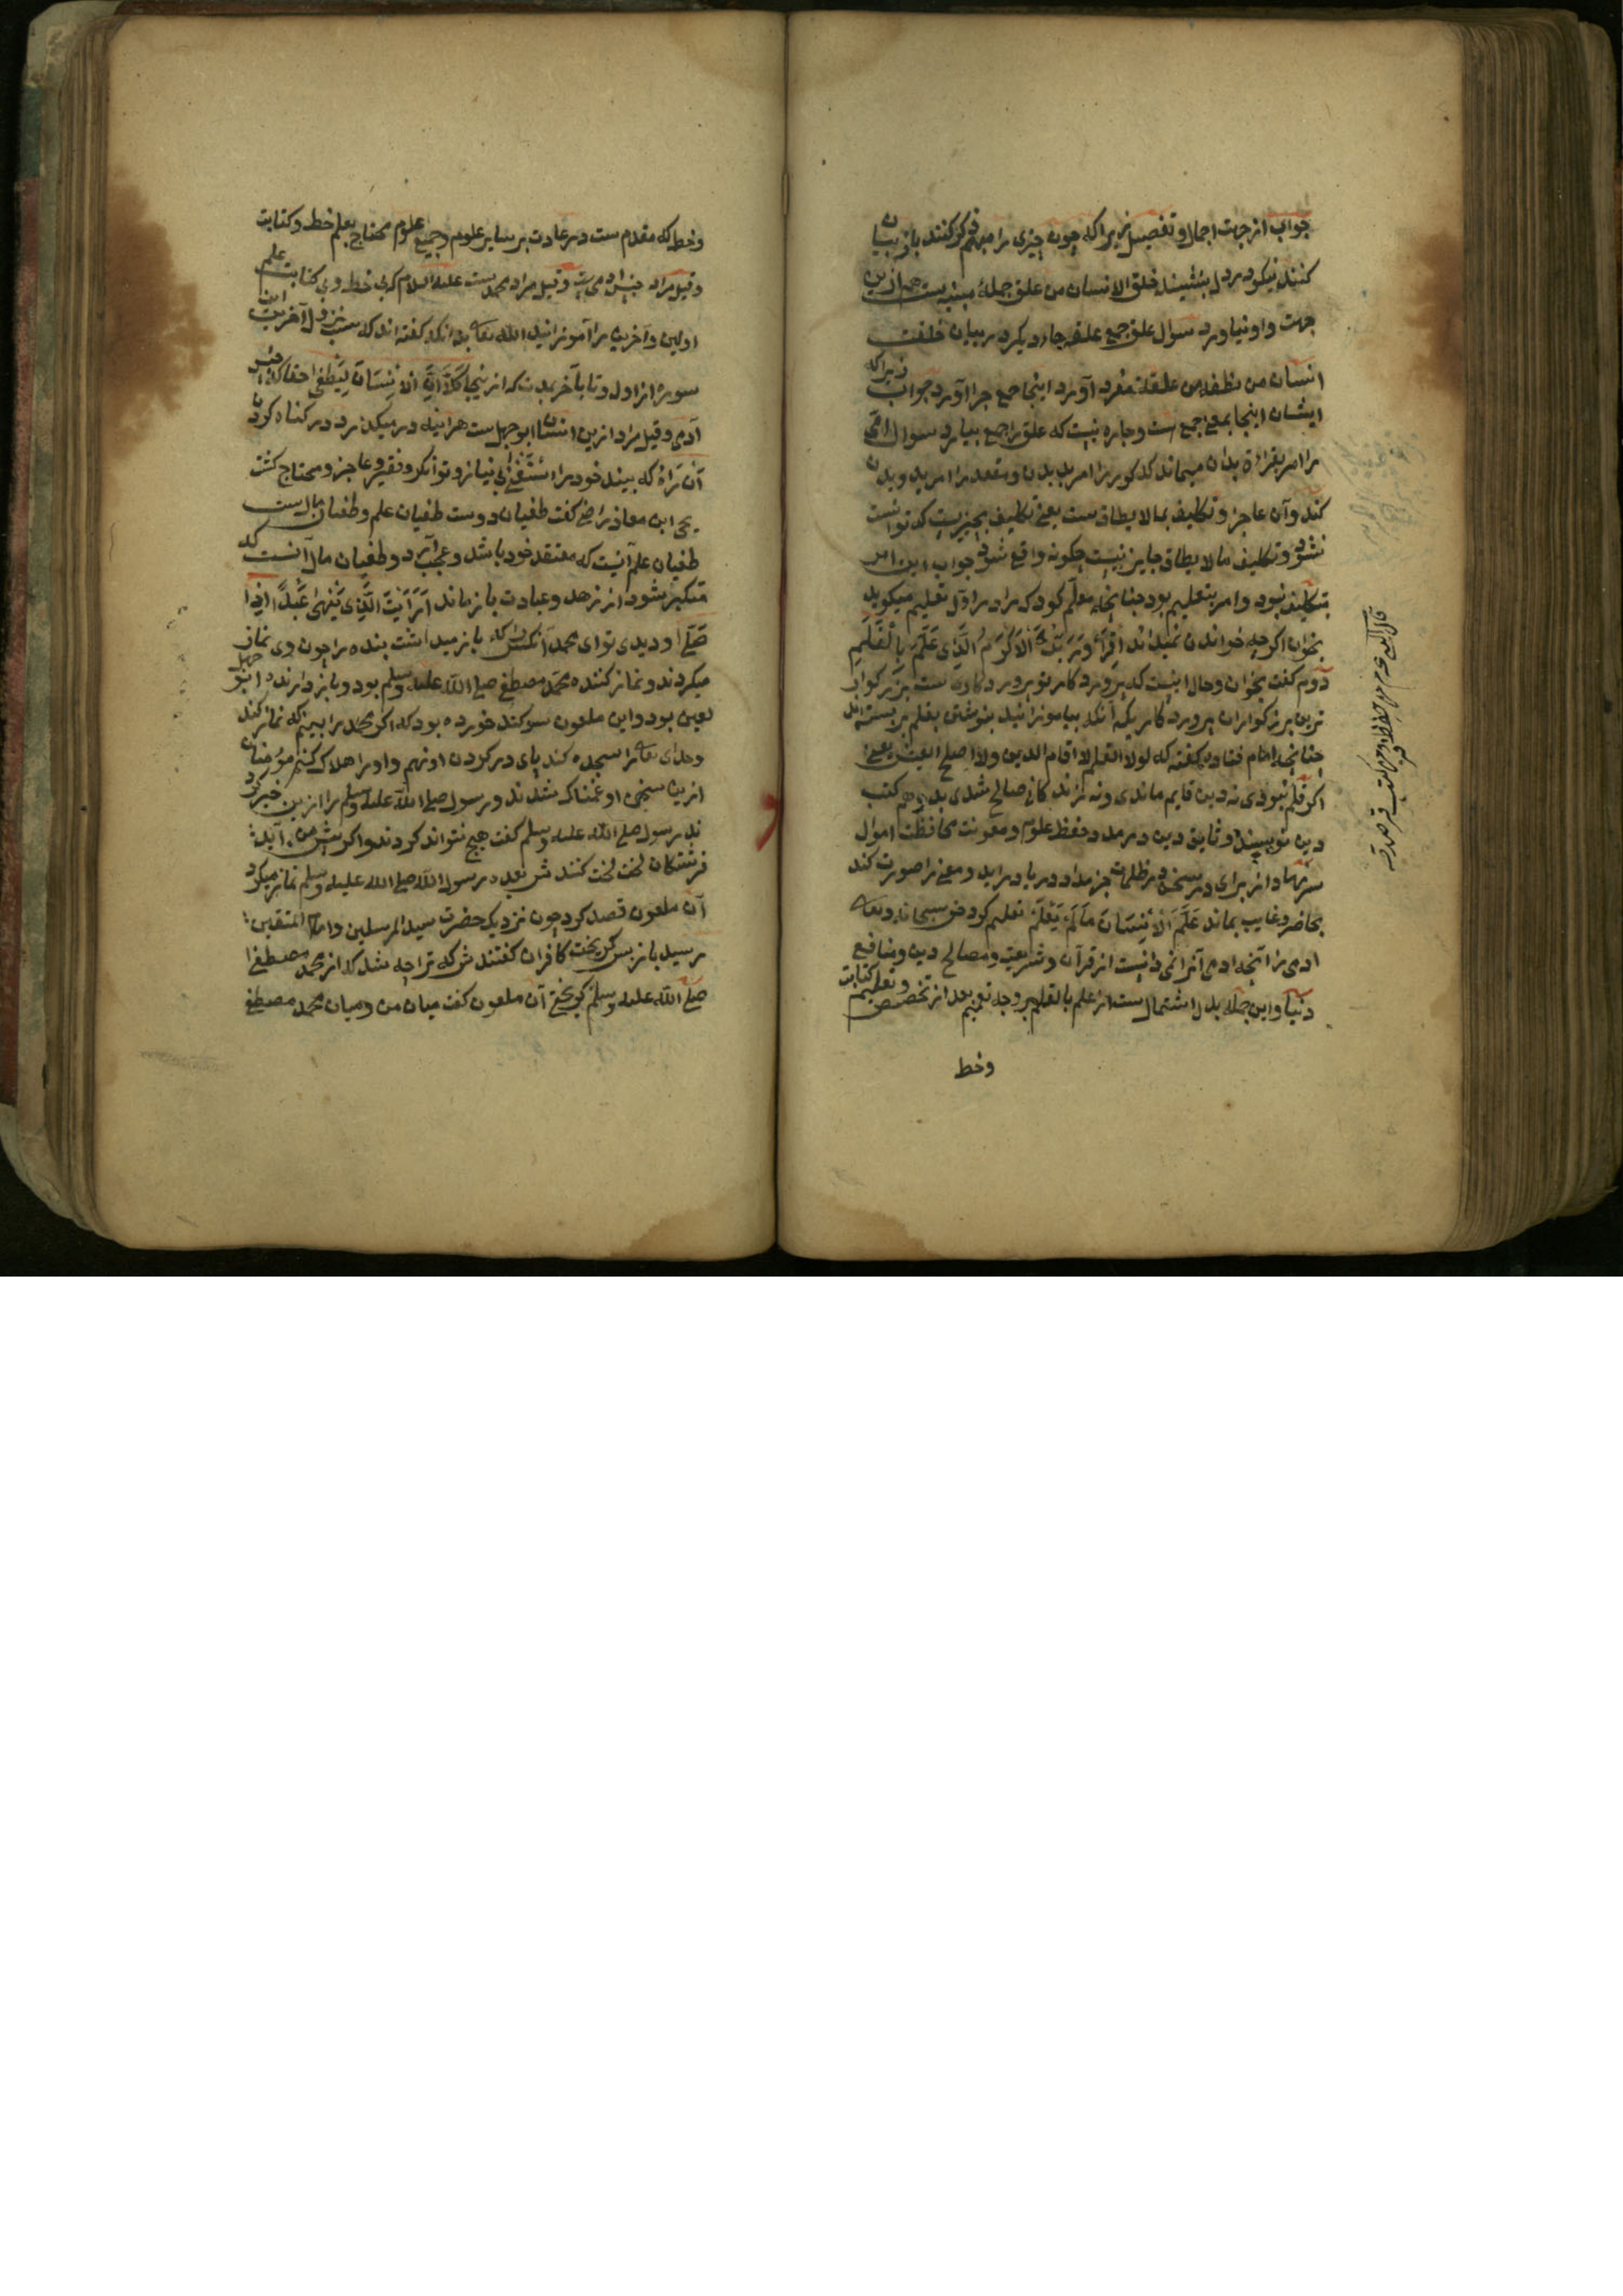 جواب از جهت اجمال و تفصیل زیراکه چون چیزی را مبهم ذکر کنند باز بیان
کنند نیکو در دل بنشیند خلق الانسان من علق جمله مبینه است هم ازین
جهت واو نیاورد سوال علق جمع علقه جاء دیکر در بیان خلقت
انسان من نطفه من علقة مفرد آورد اینجا جمع چرا آورد جواب زیراکه
ایشان اینجا بمعنی جمع است و چاره نیست که علق را جمع بیارد سوال امی
را امر بقراءة بدان میماند که کور را امر بدیدن و مقعد را امر بدویدن
کند و آن عاجز و تکلیف بما لا یطاق ست یعنی تکلیف بچیزیست که توانست
نشود و تکلیف ما لا یطاق جایز نیست چکونه واقع شود جواب این امر
بتکلیف نبود و امر بتعلیم بود چنانچه معلم کودک را در اول تعلیم میکوید
بخوان اکرچه خواندن نمیداند اِقْرَأْ وَرَبُّكَ الْاَكْرَمُ الَّذِی عَلَّمَ بِالْقَلَمِ
دوم کفت بخوان و حال اینست که پرورد کار تو پرورد کاریست بزرکوار
ترین بزرکواران پرورد کاریکه آنکه بیاموزانید بنوشتن بقلم بربسته اند
چنانچه امام قتاده کفته که لولا القلم لا اقام الدین ولا اصلح العیش یعنی
اکر قلم نبودی نه دین قایم ماندی و نه زندکانی صالح شدی بدو هم کتب
دین نویسند و ثایق دین در مدد و حفظ علوم و معونت محافظت اموال
سرّنهاد از برای در سخن در ظلمات جز مداد دریا درآید و معنی را صورت کند
بحاضر و غایب بماند عَلَّمَ الْاِنْسَانَ مَا لَمْ یَعْلَمْ تعلیم کرد حق سبحانه و تعالی
ادمی را آنچه ادمی آنرا نمی دانست از قرآن و شریعت و مصالح دین و منافع
دنیا و این جمله بدل اشتمال ست از علم بالقلم بروجه تعمیم بعد از تخصیص و تعلیم کتابت
وخط
وخط که مقدم ست در عادت بر سایر علوم و جمیع علوم محتاج بعلم خط و کتابت
وقیل مراد جنس ادمی ست وقیل مراد محمد ست علیه السلام که بی خط و بی کتابت علم
اولین و آخرین را آموزانید الله تعالی بدانکه کفته اند که سبب نزول آخر این
سورة از اول و تا بآخر بمدت که از ینجا كَلَّا اِنَّ الْاِنْسَانَ لَیَطْغٰی حقا که جنس
آدمی وقیل مراد ازین انسان ابوجهل ست هراینه در میکذرد در کناه کردن
اَنْ رَاٰهُ که بیند خود را اسْتَغْنٰی بی نیاز و توانکر و فقیر و عاجز و محتاج کشت
یحی ابن معاذ راضی کفت طغیان دوست طغیان علم و طغیان مال ست
طغیان علم آنست که معتقد خود باشد و عجب آرد و طغیان مال آنست که
متکبر شود از زهد و عبادت باز ماند اَرَاَیْتَ الَّذِی یَنْهٰی عَبْدًا اِذَا
صَلّٰی او دیدی تو ای محمد آنکس را که باز میداشت بنده را چون وی نماز
میکردند و نماز کننده محمد مصطفی صلی الله علیه وسلم بود و باز دارنده ابو جهل
لعین بود و این ملعون سوکند خورده بود که اکر محمد را ببینم که نماز کند
وخدای تعالی را سجده کند پای در کردن او نهم و او را هلاک کنم مؤمنان
ازین سخن او غمناک شدند و رسول صلی الله علیه وسلم را ازین خبر کرد
ند رسول صلی الله علیه وسلم کفت هیچ نتواند کردند و اکر پیش من آید
فرشتکان لخت لخت کنندش بعده رسول الله صلی الله علیه وسلم نماز میکرد
آن ملعون قصد کرد چون نزدیک حضرت سید المرسلین و امام المتقین
رسید باز پس کریخت کافران کفتندش که ترا چه شد که از محمد مصطفی
صلی الله علیه وسلم کریختی آن ملعون کفت میان من و میان محمد مصطفی